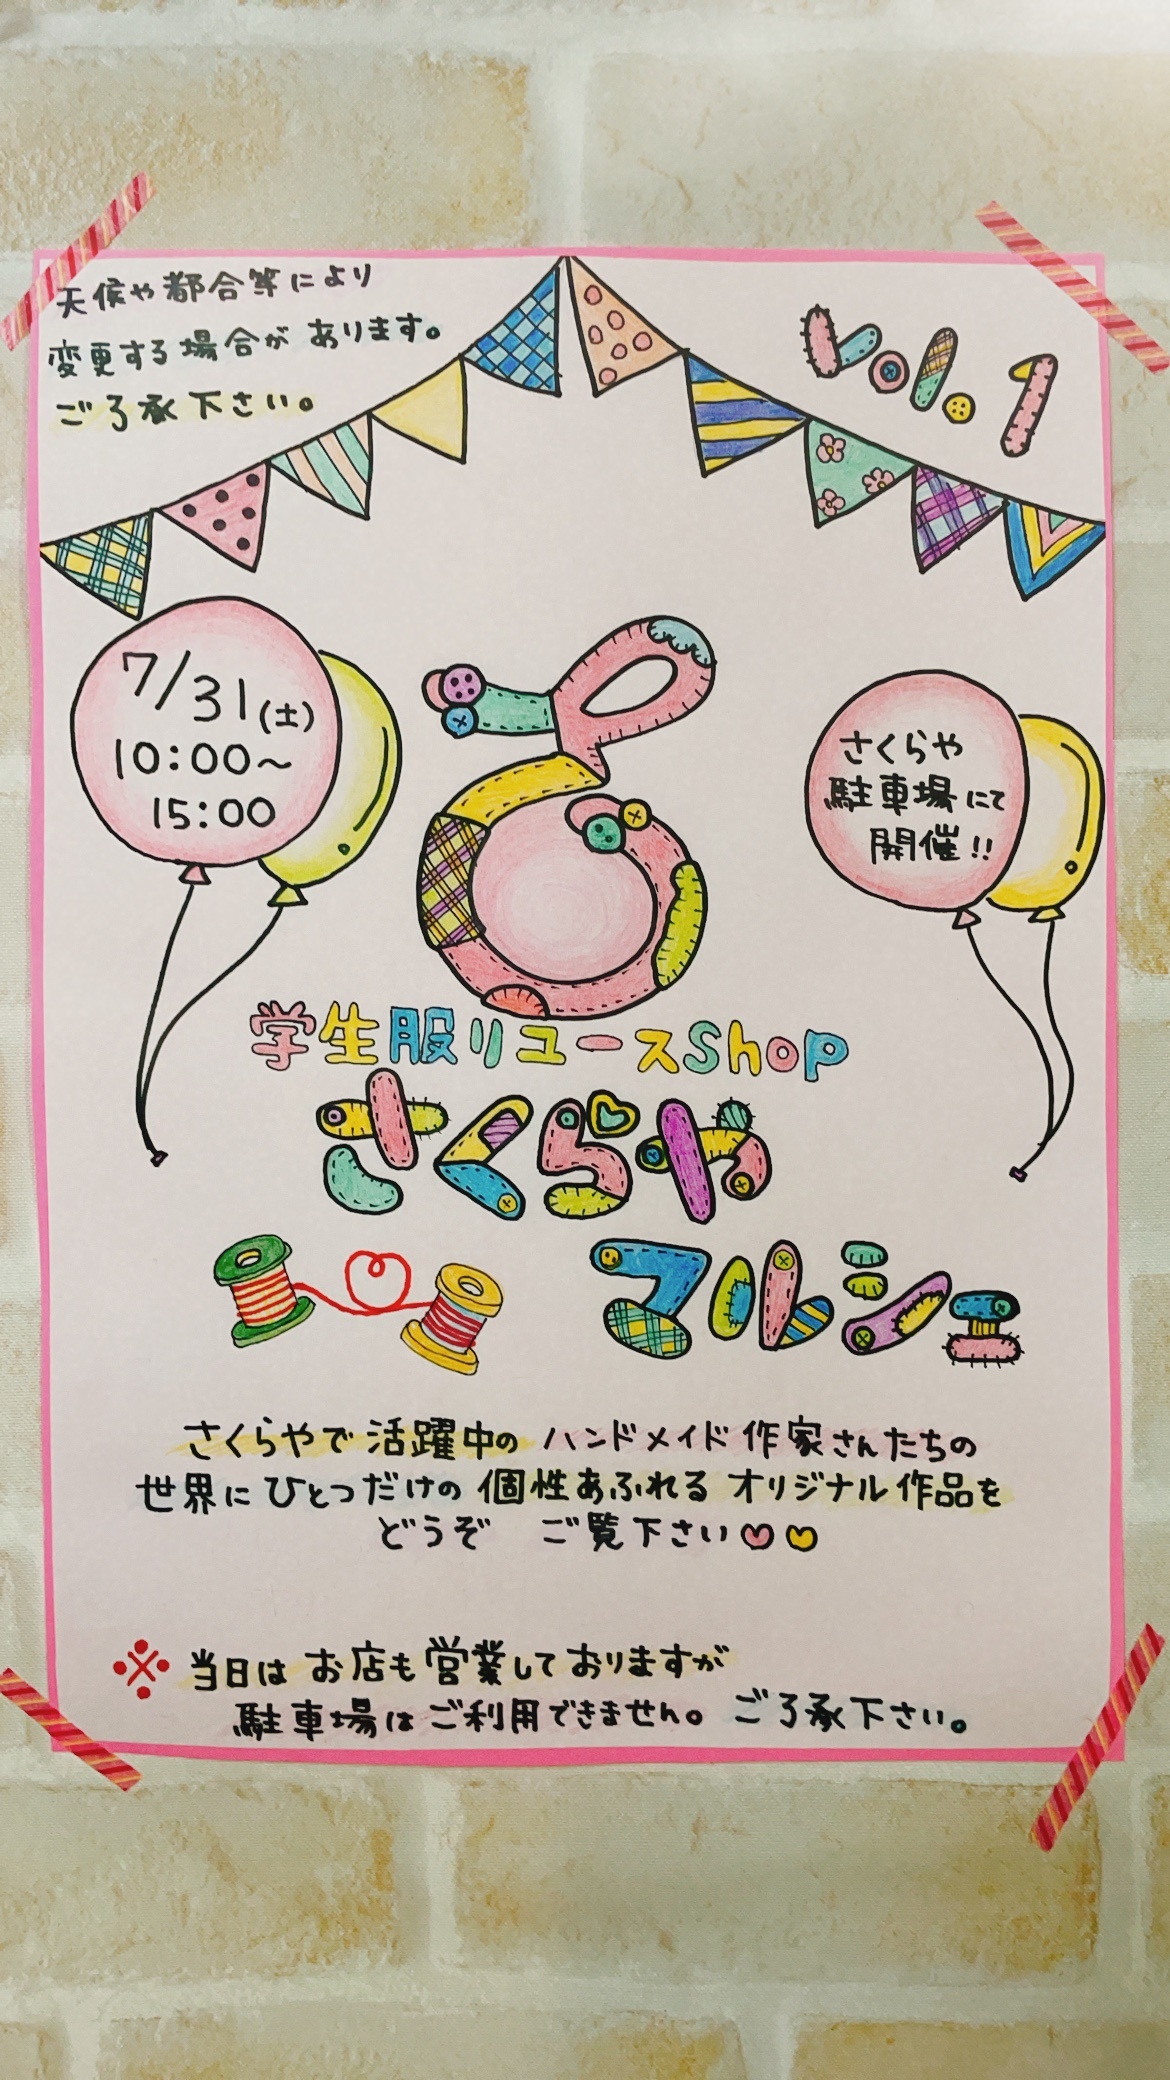 天候や都合等により
変更する場合が あります。
ご了承下さい。
vol.1
7/31(土)
10:00～
15:00
さくらや
駐車場にて
開催!!
学生服リユースshop
さくらや
マルシェ
さくらやで活躍中の ハンドメイド作家さんたちの
世界にひとつだけの個性あふれる オリジナル作品を
どうぞ ご覧下さい
※ 当日は お店も営業しておりますが
駐車場はご利用できません。 ご了承下さい。